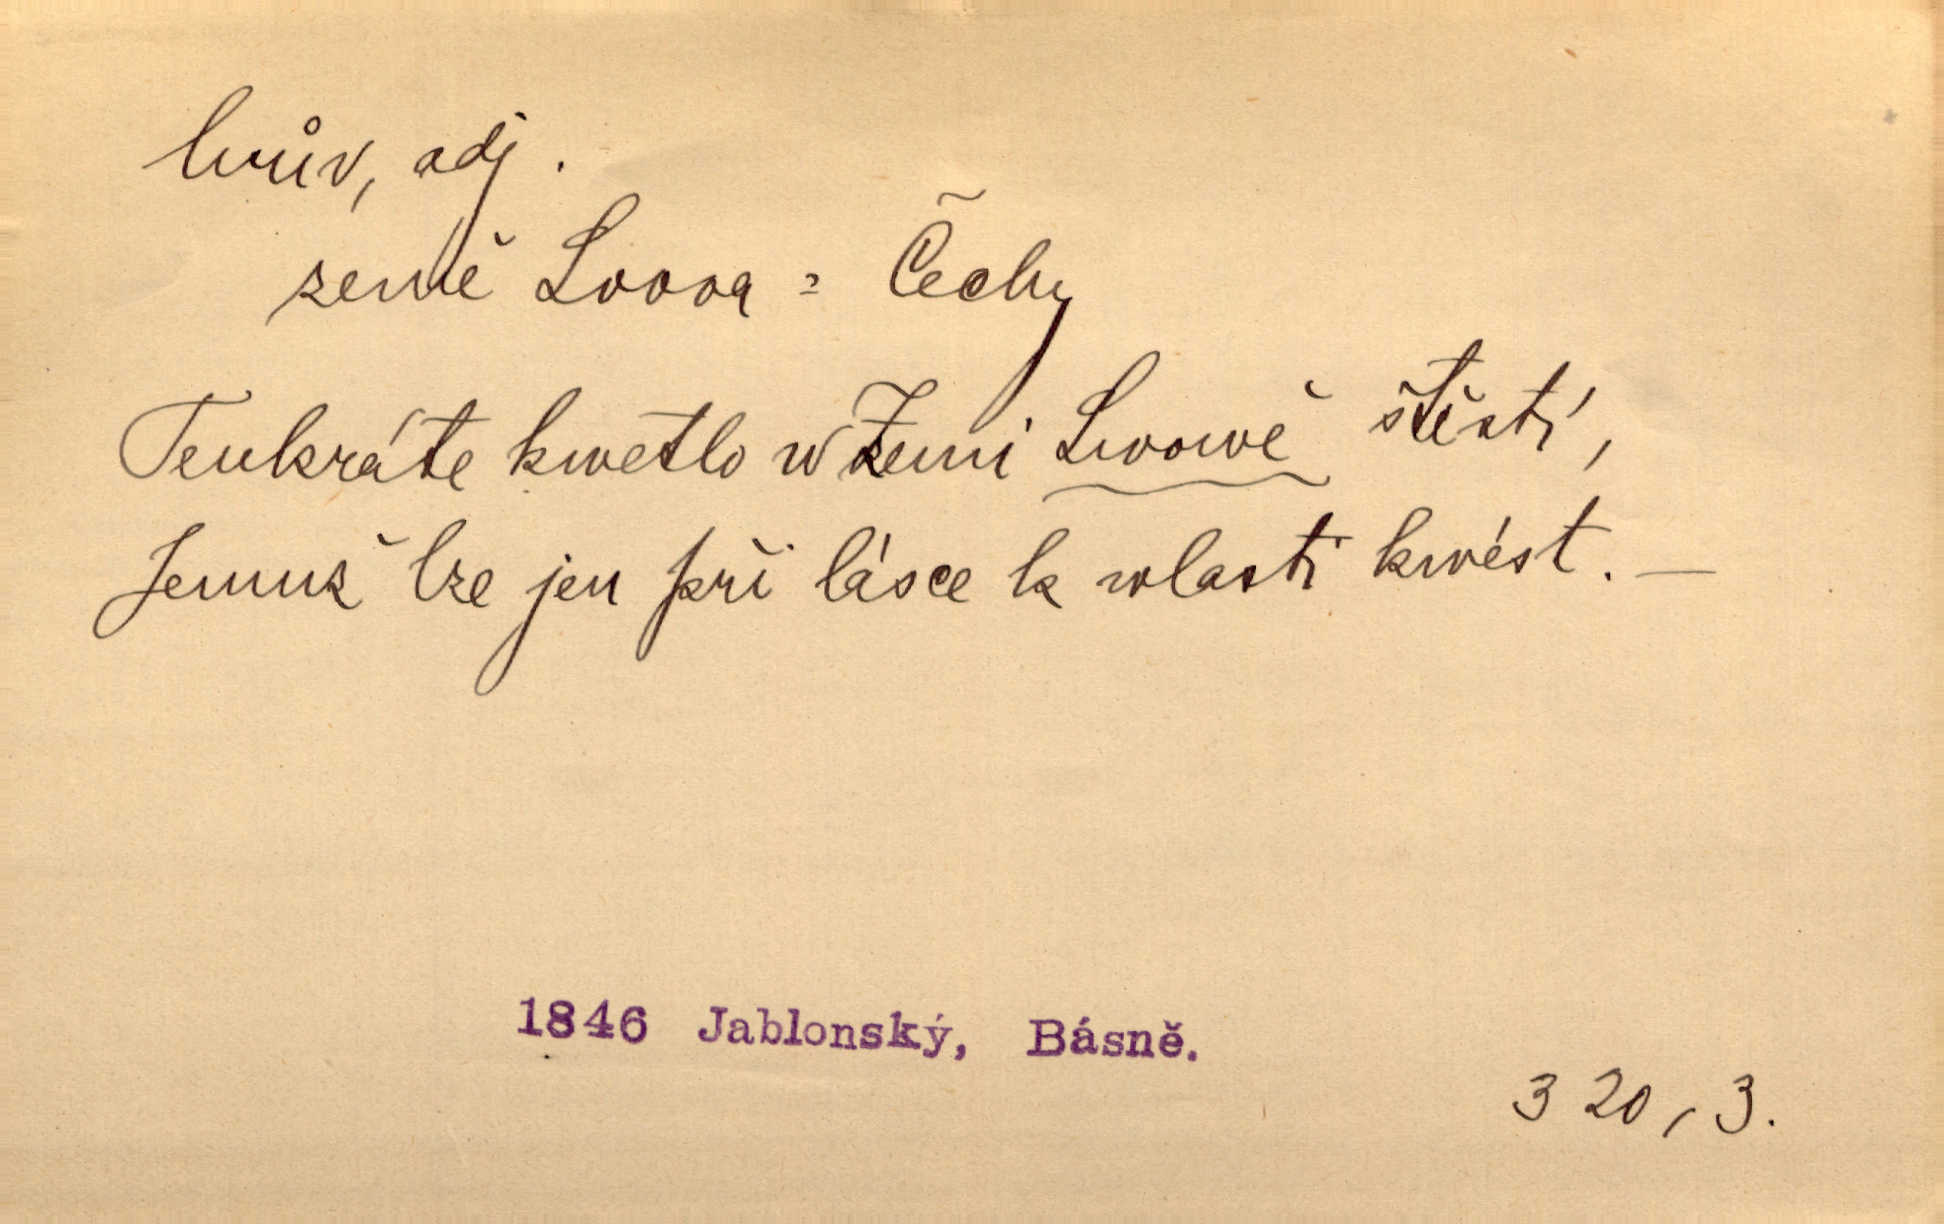 lvův, adj.
země Lvova = Čechy
Tenkráte kwetlo w Zemi Lwowě štěstí,
Jemuž lze jen při lásce k wlasti kwést. —
1846 Jablonský, Básně.
320, 3.